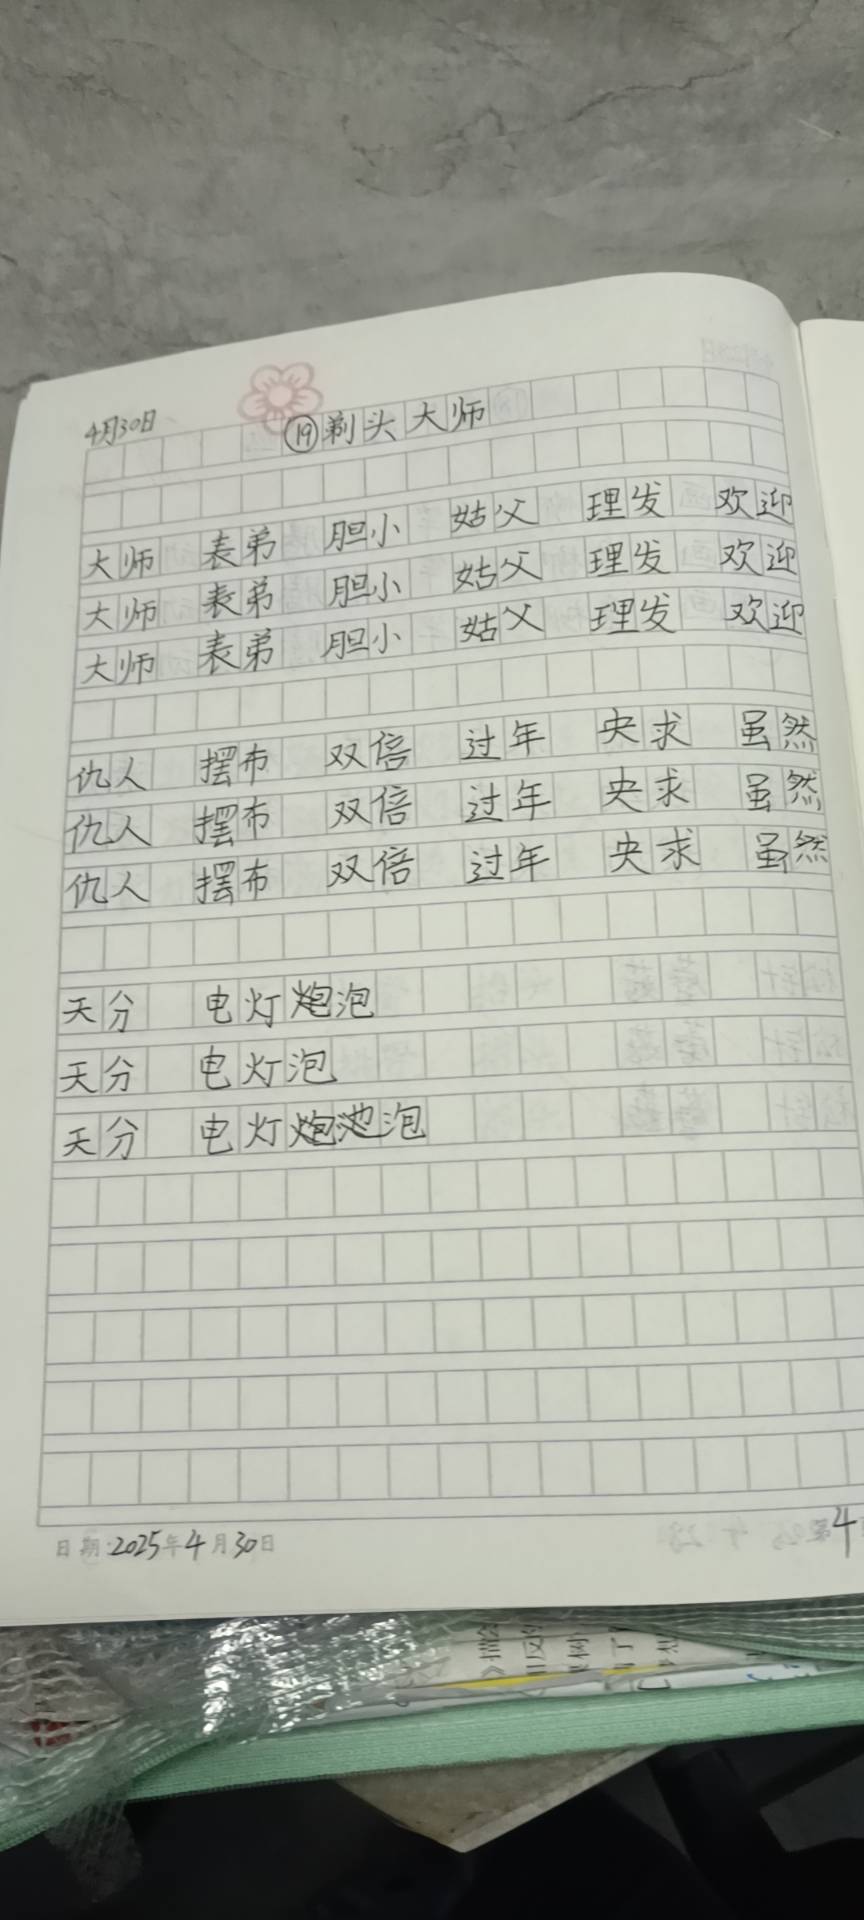 4月30日
⑲剃头大师
大师 表弟 胆小 姑父 理发 欢迎
大师 表弟 胆小 姑父 理发 欢迎
大师 表弟 胆小 姑父 理发 欢迎
仇人 摆布 双倍 过年 央求 虽然
仇人 摆布 双倍 过年 央求 虽然
仇人 摆布 双倍 过年 央求 虽然
天分 电灯泡
天分 电灯泡
天分 电灯泡
日期:2025年4月30日
第4